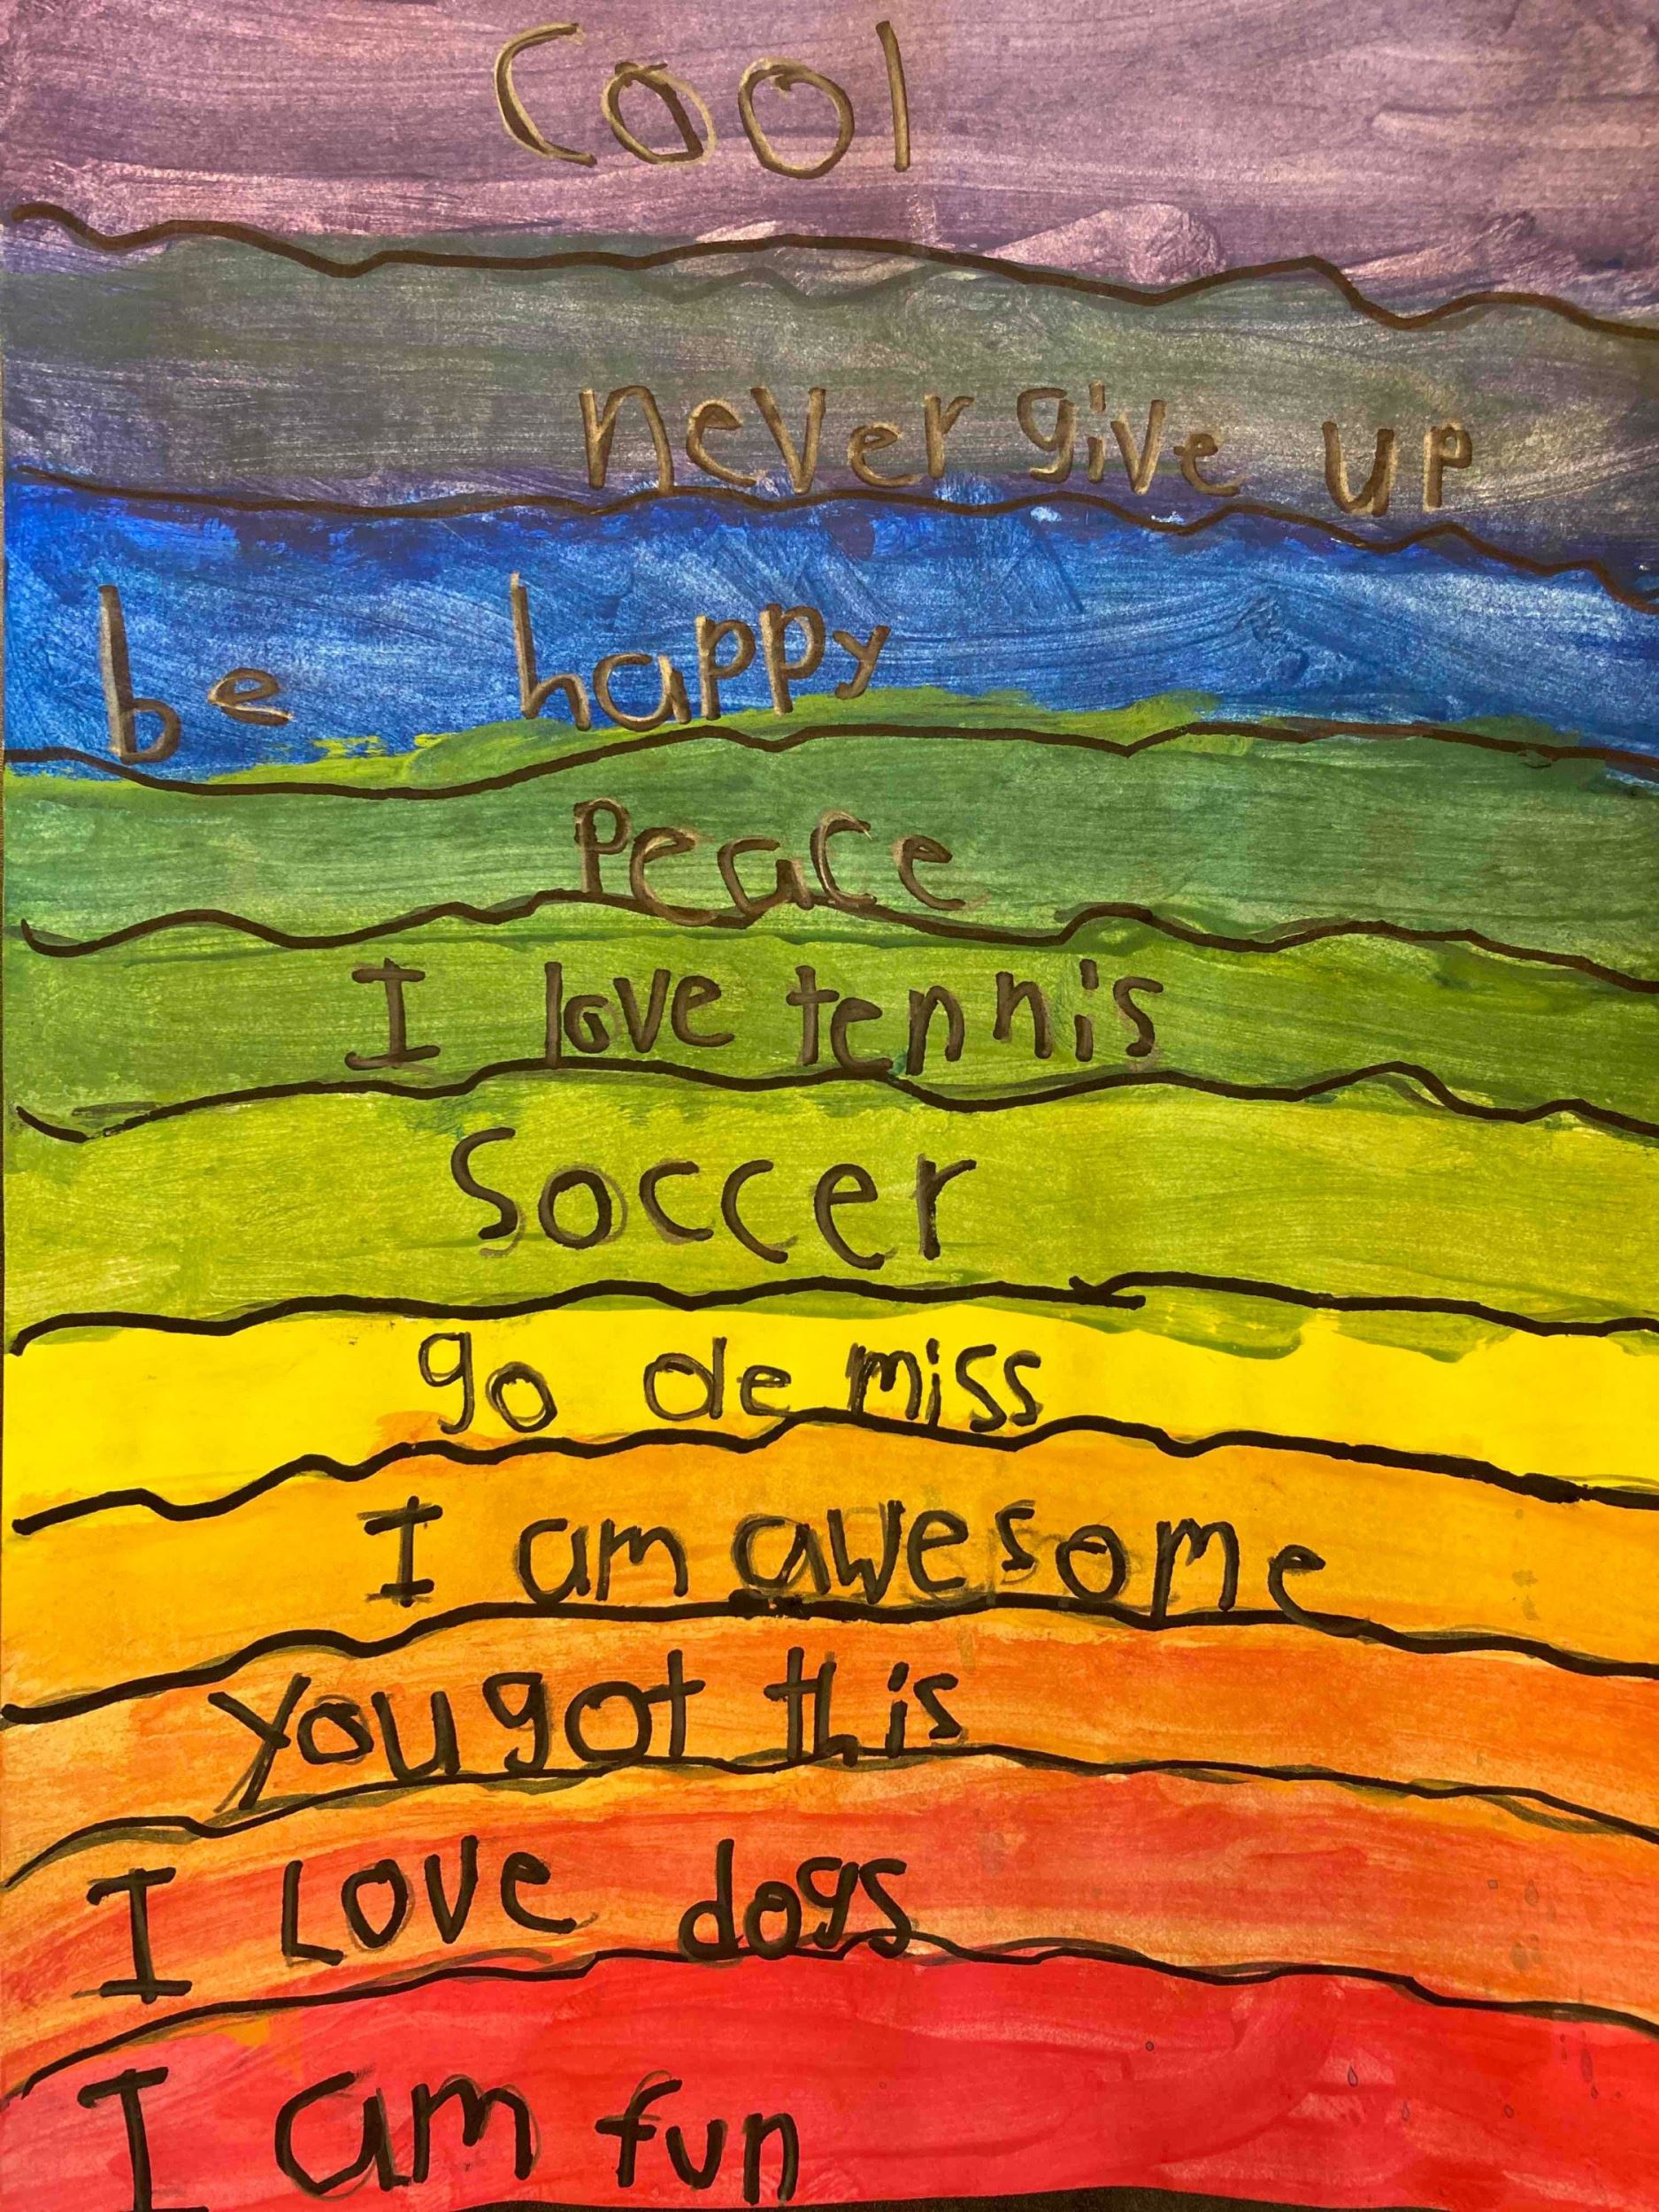 Cool
never give up
be happy
Peace
I love tennis
Soccer
go de miss
I am awesome
You got this
I Love dogs
I am fun